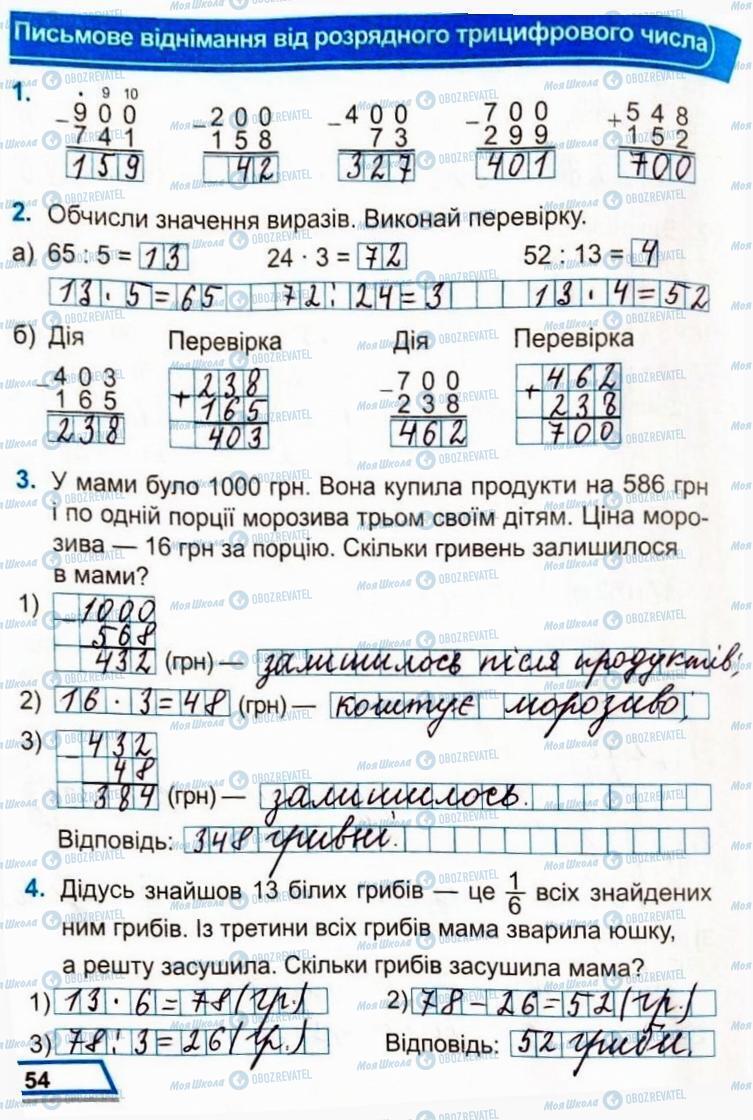 Письмове віднімання від розрядного трицифрового числа
1.
9 10
- 900 - 200 - 400 - 700 + 548
741 158 73 299 152
159 42 327 401 700
2. Обчисли значення виразів. Виконай перевірку.
а) 65 : 5 = 13 24 · 3 = 72 52 : 13 = 4
13 · 5 = 65 72 : 24 = 3 13 · 4 = 52
б) Дія Перевірка Дія Перевірка
- 403 + 238 - 700 + 462
165 165 238 238
238 403 462 700
3. У мами було 1000 грн. Вона купила продукти на 586 грн
і по одній порції морозива трьом своїм дітям. Ціна моро-
зива — 16 грн за порцію. Скільки гривень залишилося
в мами?
1) - 1000
568
432 (грн) — залишилось після продуктів;
2) 16 · 3 = 48 (грн) — коштує морозиво;
3) - 432
48
384 (грн) — залишилось.
Відповідь: 348 гривні.
4. Дідусь знайшов 13 білих грибів — це 1/6 всіх знайдених
ним грибів. Із третини всіх грибів мама зварила юшку,
а решту засушила. Скільки грибів засушила мама?
1) 13 · 6 = 78 (гр.) 2) 78 - 26 = 52 (гр.)
3) 78 : 3 = 26 (гр.) Відповідь: 52 гриби.
54
МояШкола OBOZREVATEL